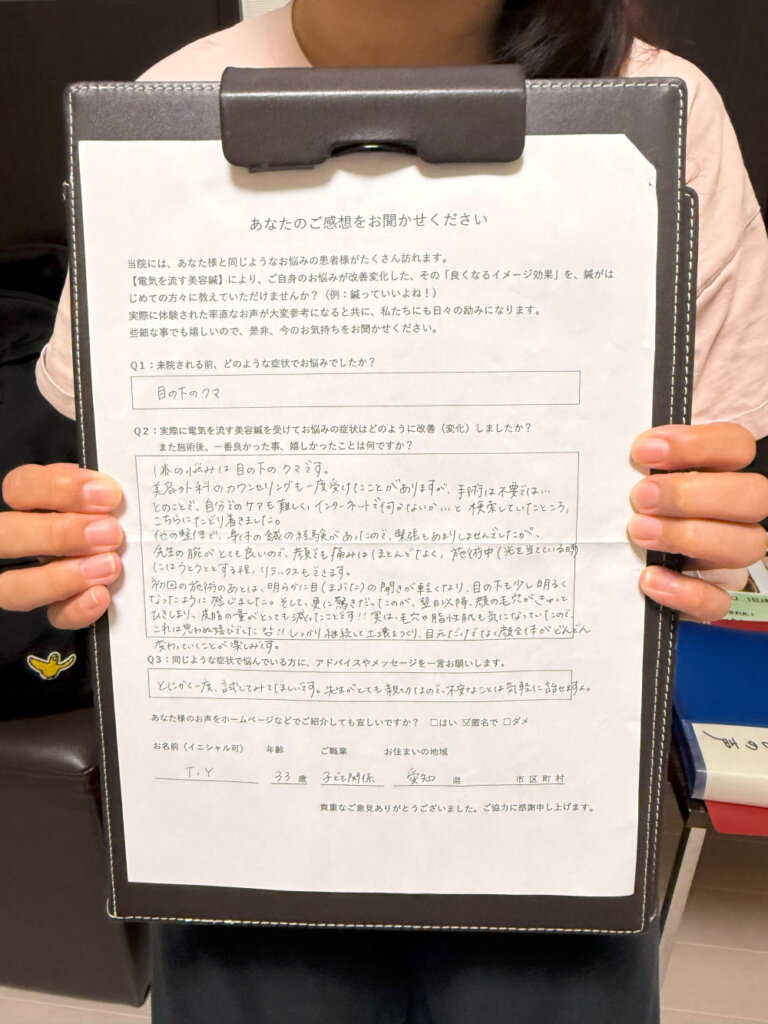 あなたのご感想をお聞かせください
当院には、あなた様と同じようなお悩みの患者様がたくさん訪れます。
【電気を流す美容鍼】により、ご自身のお悩みが改善変化した、その「良くなるイメージ効果」を、鍼がは
じめての方々に教えていただけませんか？（例：鍼っていいよね！）
実際に体験された率直なお声が大変参考になると共に、私たちにも日々の励みになります。
些細な事でも嬉しいので、是非、今のお気持ちをお聞かせください。
Q1：来院される前、どのような症状でお悩みでしたか？
目の下のクマ
Q2：実際に電気を流す美容鍼を受けてお悩みの症状はどのように改善（変化）しましたか？
また施術後、一番良かった事、嬉しかったことは何ですか？
1番の悩みは目の下のクマです。
美容外科のカウンセリングも一度受けたことがありますが、手術は不要では…
とのことで、自分でのケアも難しく、インターネットで何かないか…と検索していたところ、
こちらにたどり着きました。
他の整体で、身体の鍼の経験があったので、緊張もあまりしませんでしたが、
先生の腕がとても良いので、顔でも痛みはほとんどなく、施術中（光を当てている時）
にはうとうとする程、リラックスもできます。
初回の施術のあとは、明らかに目（まぶた）の開きが軽くなり、目の下も少し明るく
なったように感じました。そして、更に驚きだったのが、翌日以降、顔の毛穴がきゅっと
ひきしまり、皮脂の量がとっても減ったことです!! 実は、毛穴や脂性肌も気になっていたので、
これは思わぬ喜びでした!! しっかり継続して土壌をつくり、目元だけでなく顔全体がどんどん
変わっていくことが楽しみです。
Q3：同じような症状で悩んでいる方に、アドバイスやメッセージを一言お願いします。
とにかく一度、試してみてほしいです。先生がとても親切なので、不安なことは気軽に話せますよ。
あなた様のお声をホームページなどでご紹介しても宜しいですか？ □はい ☑匿名で □ダメ
お名前（イニシャル可） 年齢 ご職業 お住まいの地域
T.Y 33 歳 子ども関係 愛知 県 市区町村
貴重なご意見ありがとうございました。ご協力に感謝申し上げます。